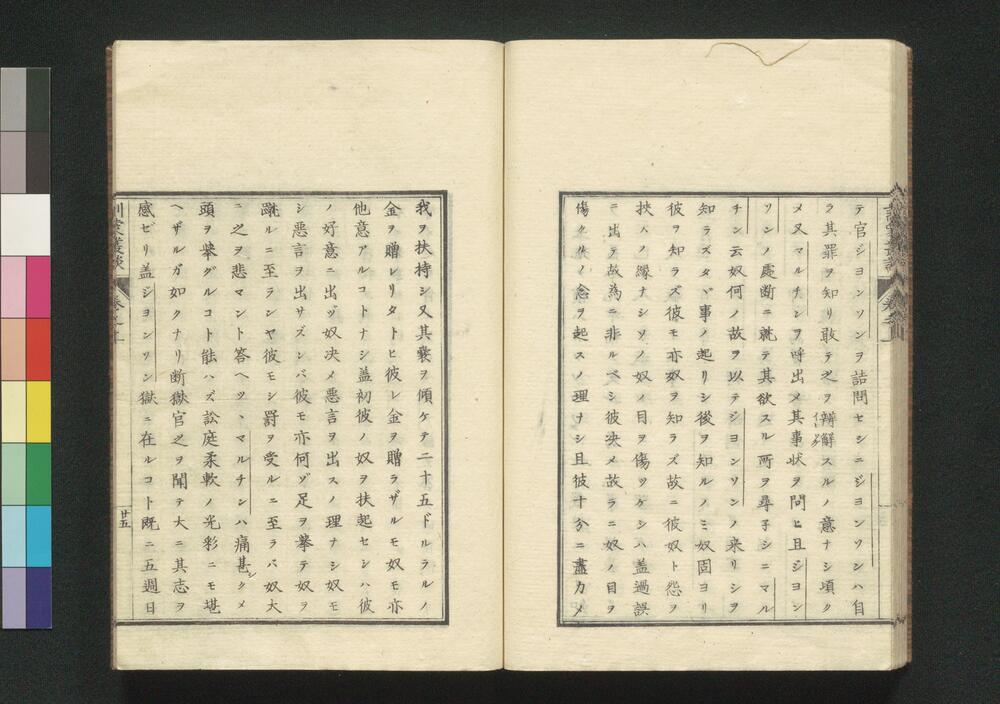 テ官ジヨンソンヲ詰問セシニジヨンソンハ自
ラ其罪ヲ知リ敢テ之ヲ辯解スルノ意ナシ頃ク
メ又マルチンヲ呼出メ其事状ヲ問ヒ且ジヨン
ソンノ處断ニ就テ其欲スル所ヲ尋子シニマル
チン云奴何ノ故ヲ以テジヨンソンノ来リシヲ
知ラズタヾ事ノ起リシ後ヲ知ルノミ奴固ヨリ
彼ヲ知ラズ彼モ亦奴ヲ知ラズ故ニ彼奴ト怨ヲ
挾ハノ縁ナシソノ奴ノ目ヲ傷ツケシハ盖過誤
ニ出テ故為ニ非ルベシ彼决メ故ラニ奴ノ目ヲ
傷クルノ念ヲ起スノ理ナシ且彼十分ニ盡力メ
我ヲ扶持シ又其嚢ヲ傾ケテ二十五ドルラルノ
金ヲ贈レリタトヒ彼レ金ヲ贈ラザルモ奴モ亦
他意アルコトナシ盖初彼ノ奴ヲ扶起セシハ彼
ノ好意ニ出ヅ奴决メ悪言ヲ出スノ理ナシ奴モ
シ悪言ヲ出サズンバ彼モ亦何ゾ足ヲ擧テ奴ヲ
跳ルニ至ランヤ彼モシ罰ヲ受ルニ至ラバ奴大
ニ之ヲ悲マント答ヘツヽマルチンハ痛甚シクメ
頭ヲ擧グルコト能ハズ訟庭柔軟ノ光彩ニモ堪
ヘザルガ如クナリ断獄官之ヲ聞テ大ニ其志ヲ
感ゼリ盖ジヨンソン獄ニ在ルコト既ニ五週日
廿五